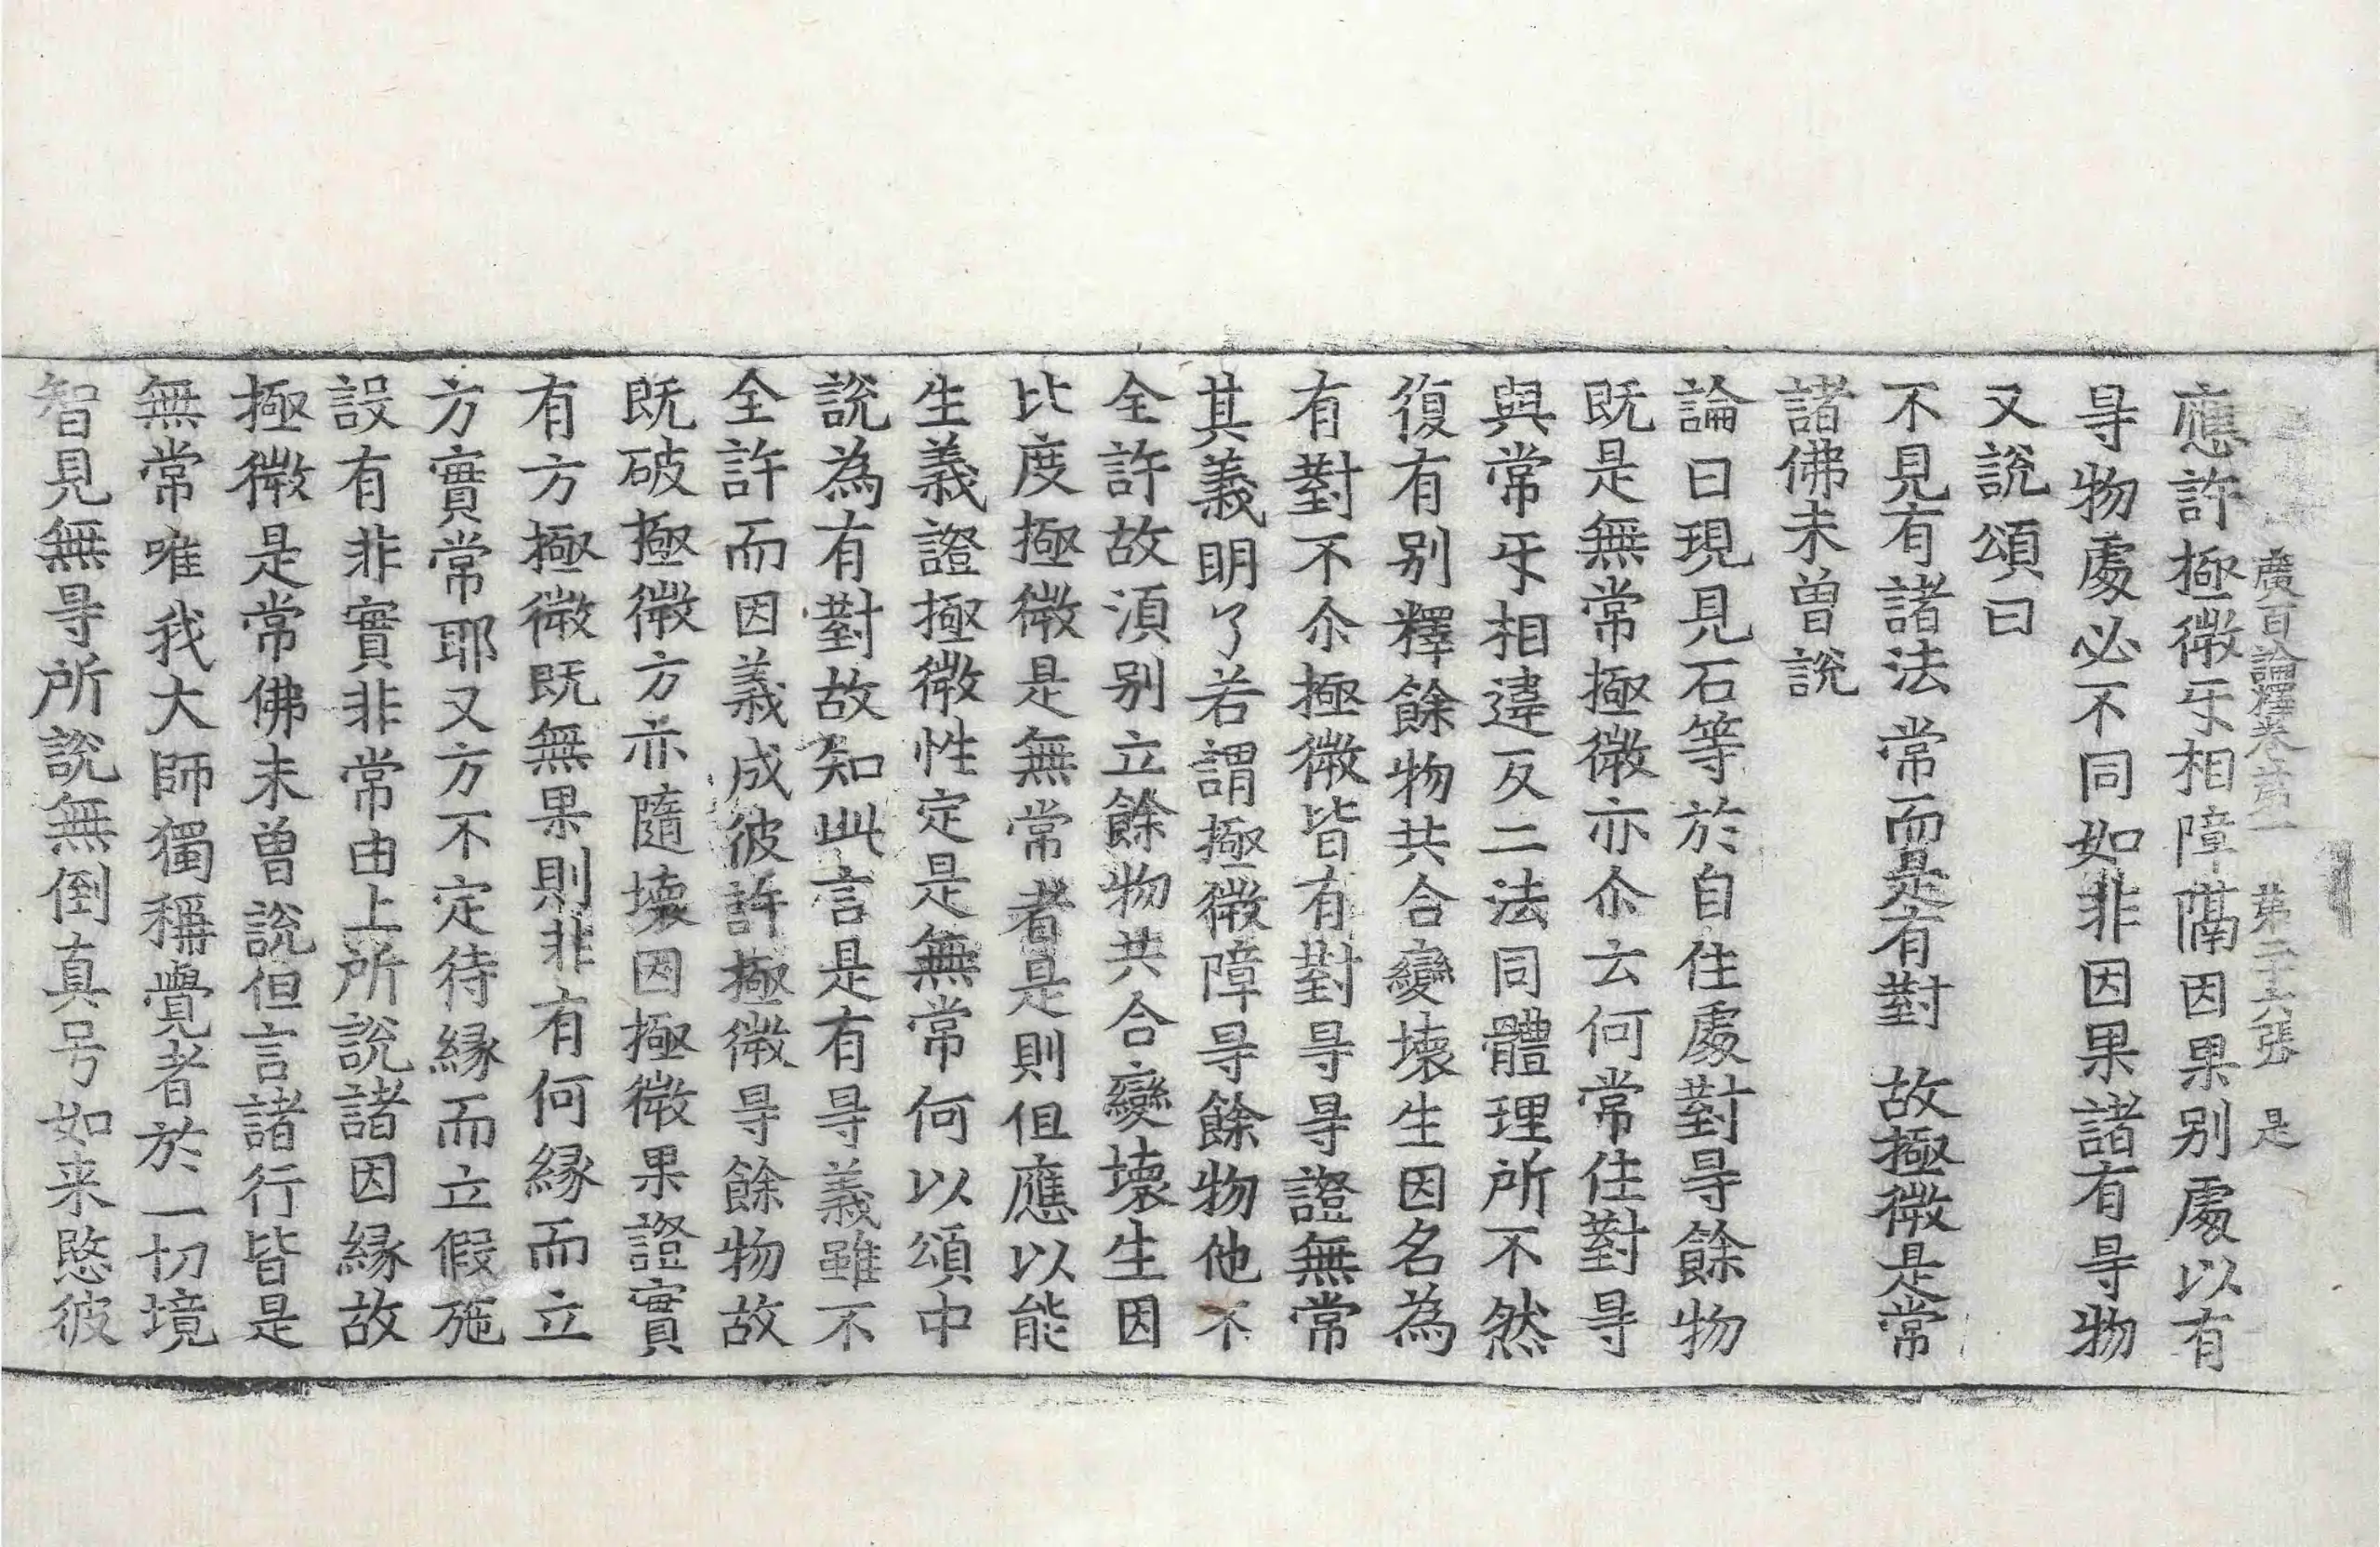 廣百論釋卷第一 第二十六張 是
應許極微牙相障隔因果别處以有
㝵物處必不同如非因果諸有㝵物
又說頌曰
不見有諸法 常而是有對 故極微是常
諸佛未曾說
論曰現見石等於自住處對㝵餘物
既是無常極微亦尒云何常住對㝵
與常牙相違反二法同體理所不然
復有别釋餘物共合變壞生因名為
有對不尒極微皆有對㝵㝵證無常
其義明了若謂極微障㝵餘物他不
全許故湏别立餘物共合變壞生因
比度極微是無常者是則伹應以能
生義證極微性定是無常何以頌中
說為有對故知此言是有㝵義雖不
全許而因義成彼許極微㝵餘物故
既破極微方亦隨壞因極微果證實
有方極微既無果則非有何緣而立
方實常耶又方不定待緣而立假施
設有非實非常由上所說諸因緣故
極微是常佛未曾說但言諸行皆是
無常唯我大師獨稱覺者於一切境
智見無㝵所說無倒真号如来愍彼